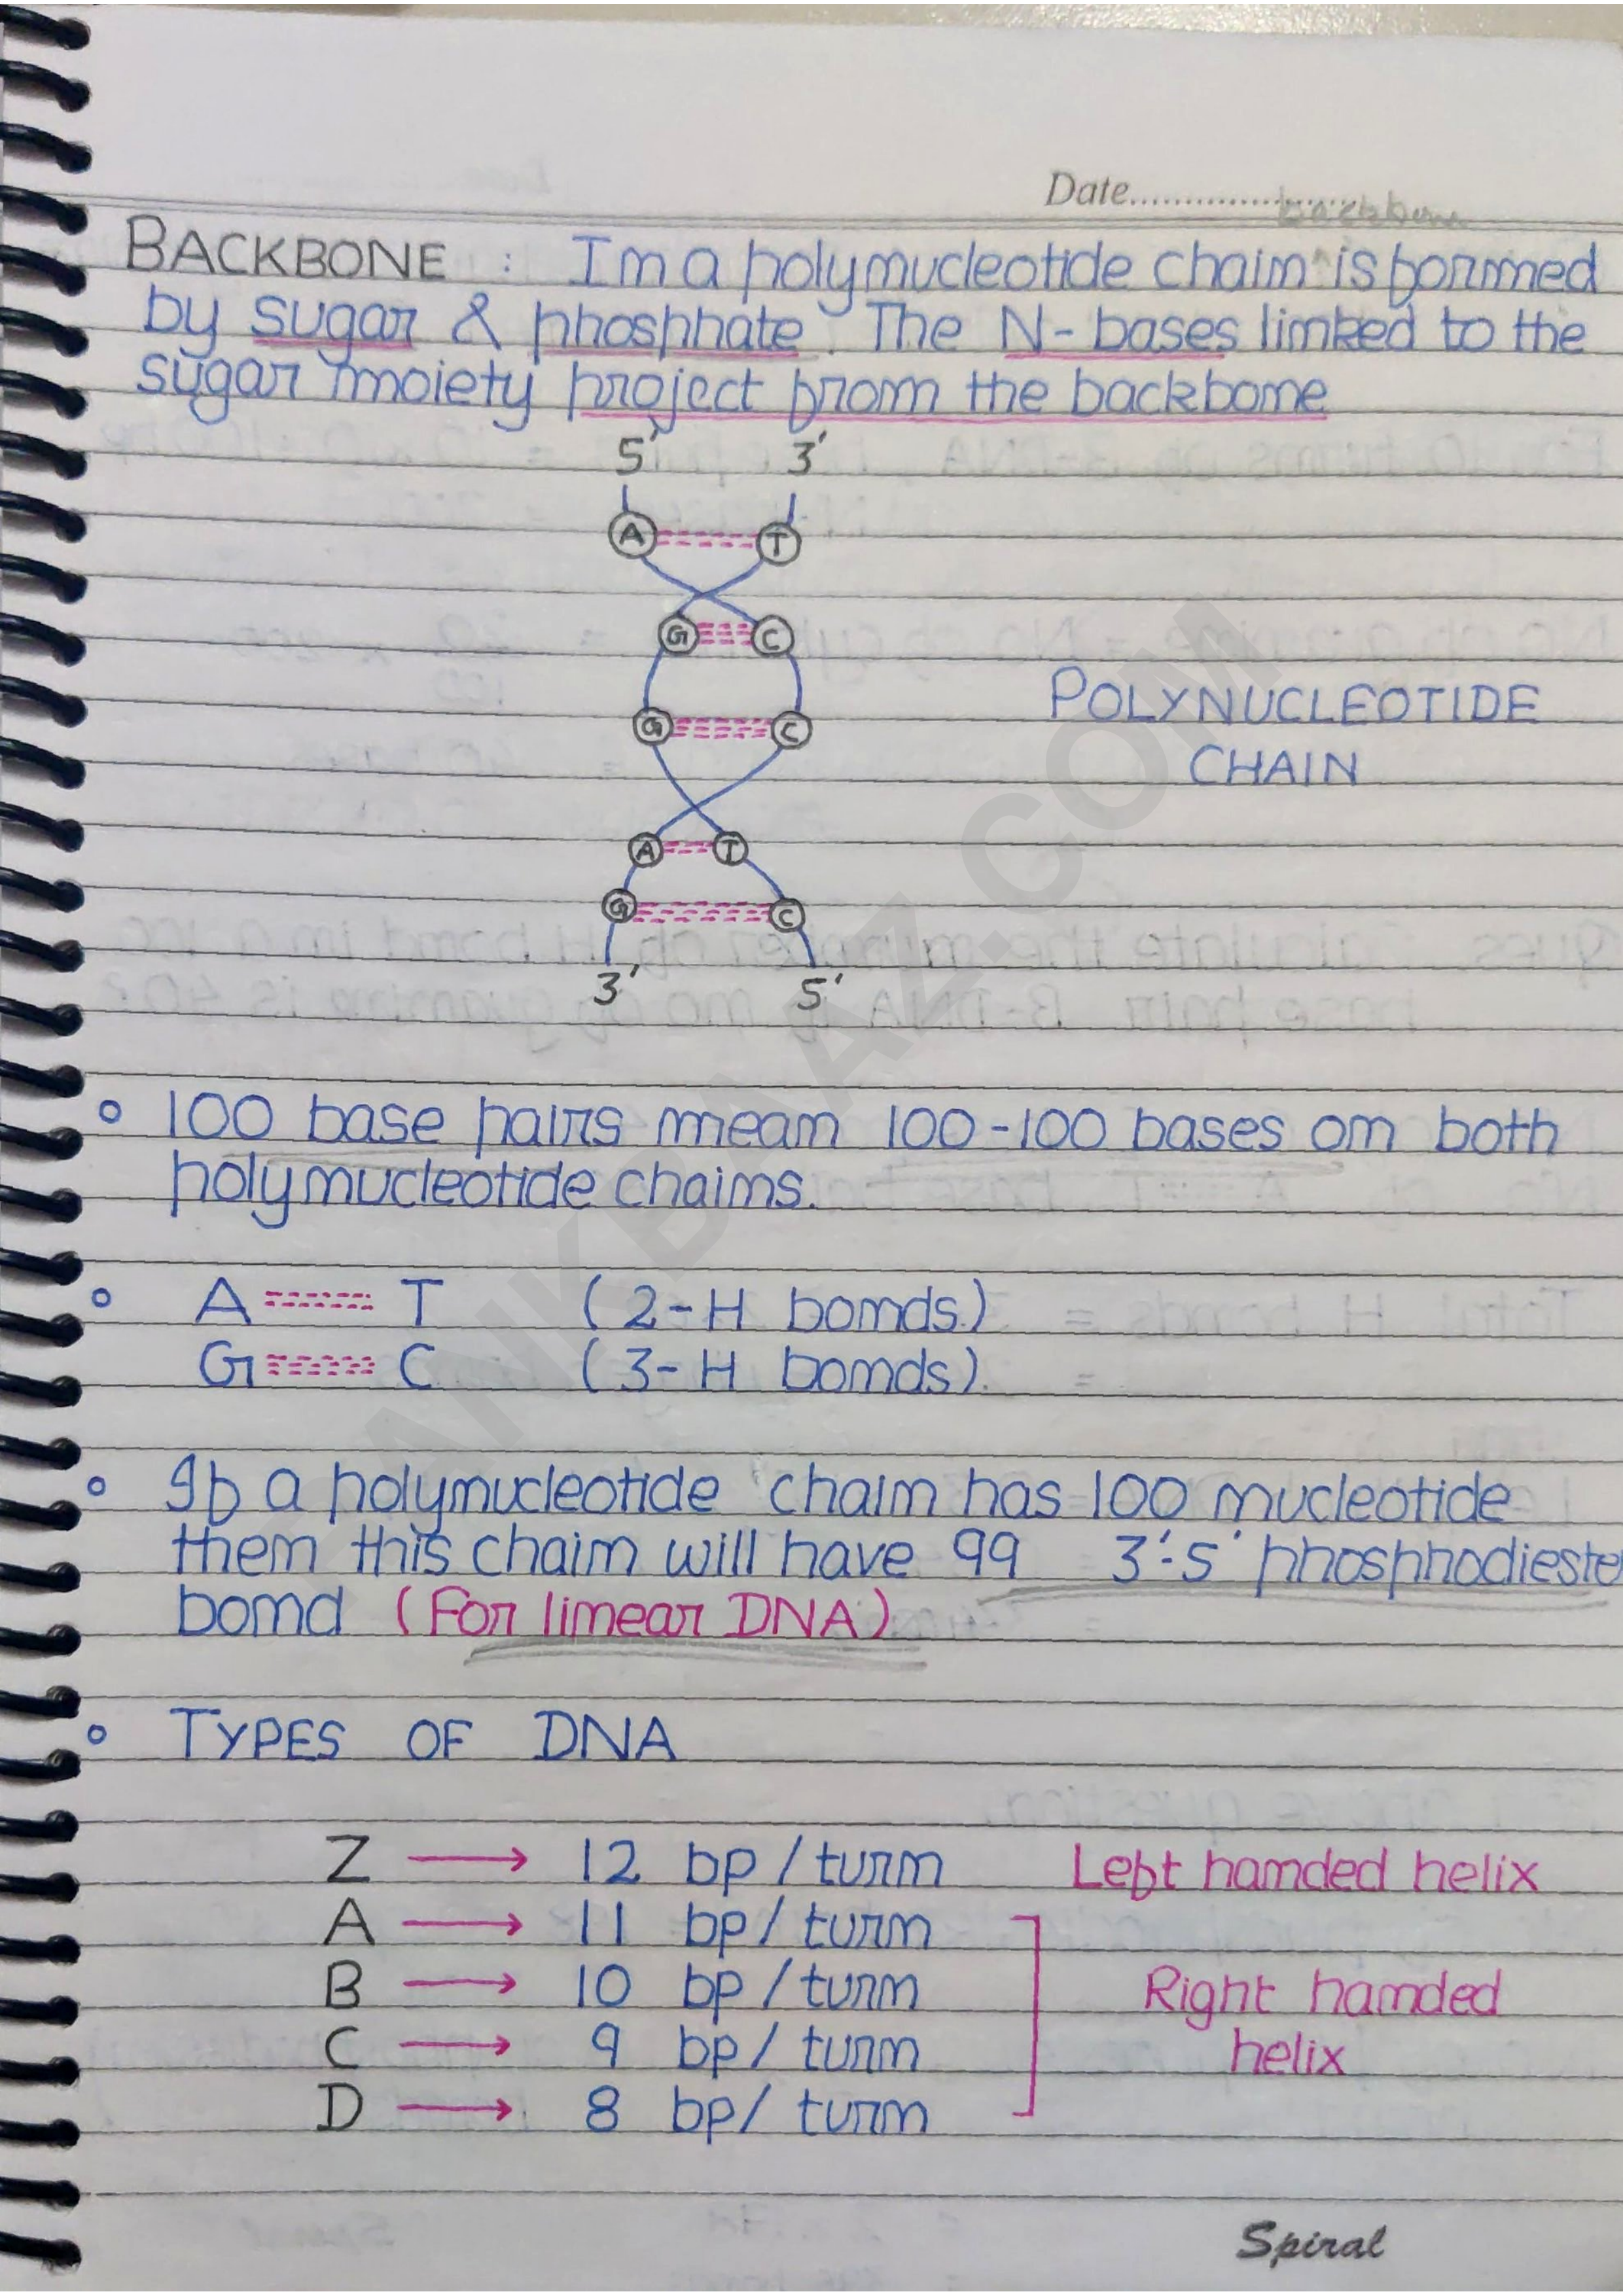 Date....................
backbone
BACKBONE : In a polynucleotide chain ^ is formed
by sugar & phosphate. The N-bases linked to the
sugar moiety project from the backbone
5' 3'
A T
G C
G C
POLYNUCLEOTIDE
CHAIN
A T
G C
3' 5'
100 base pairs mean 100-100 bases on both
polynucleotide chains.
A ===== T (2-H bonds)
G ≡≡≡≡≡ C (3-H bonds).
If a polynucleotide chain has 100 nucleotide
then this chain will have 99 3'-5' phosphodieste
bond (For linear DNA)
TYPES OF DNA
Z → 12 bp / turn Left handed helix
A → 11 bp / turn
B → 10 bp / turn Right handed
C → 9 bp / turn helix
D → 8 bp / turn
Spiral
RANKBAAZ.COM